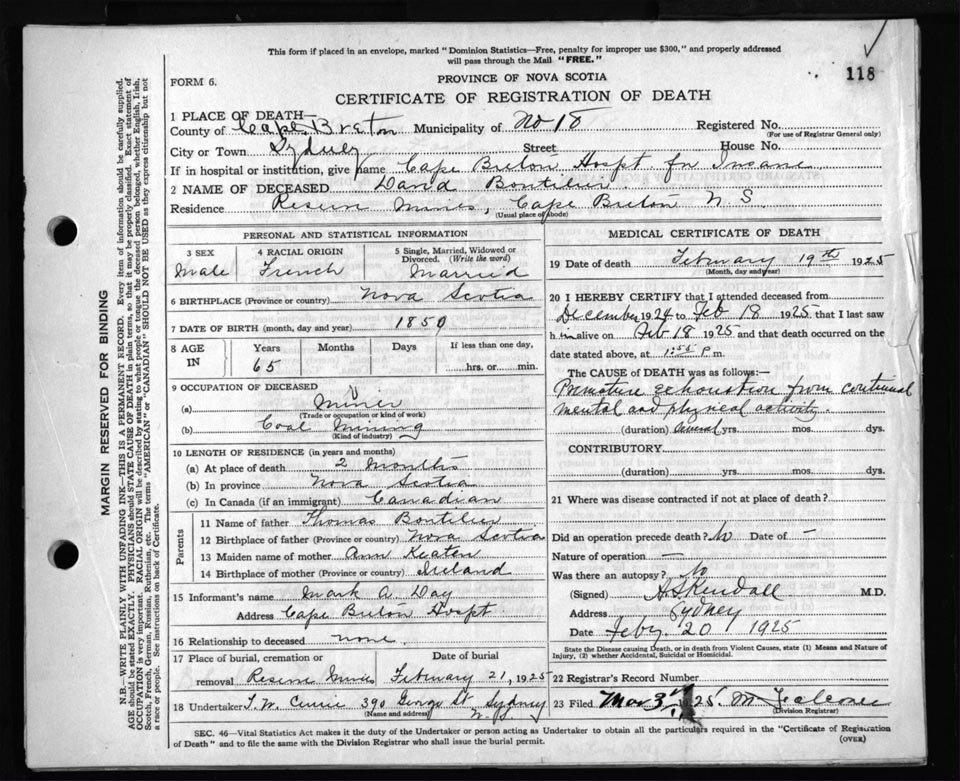 This form if placed in an envelope, marked "Dominion Statistics—Free, penalty for improper use $300," and properly addressed
will pass through the Mail "FREE."
118
FORM 6.
PROVINCE OF NOVA SCOTIA
CERTIFICATE OF REGISTRATION OF DEATH
1 PLACE OF DEATH—
County of Cape Breton Municipality of No 18 Registered No.
(For use of Registrar General only)
City or Town Sydney Street House No.
If in hospital or institution, give name Cape Breton Hospt for Insane
2 NAME OF DECEASED David Boutilier
Residence Reserve Mines, Cape Breton N S.
(Usual place of abode)
PERSONAL AND STATISTICAL INFORMATION
3 SEX 4 RACIAL ORIGIN 5 Single, Married, Widowed or
Divorced. (Write the word)
Male French Married
6 BIRTHPLACE (Province or country) Nova Scotia
7 DATE OF BIRTH (month, day and year) 1850
8 AGE IN Years Months Days If less than one day,
65 hrs. or min.
9 OCCUPATION OF DECEASED
(a) Miner
(Trade or occupation or kind of work)
(b) Coal Mining
(Kind of industry)
10 LENGTH OF RESIDENCE (in years and months)
(a) At place of death 2 Months
(b) In province Nova Scotia
(c) In Canada (if an immigrant) Canadian
Parents
11 Name of father Thomas Boutilier
12 Birthplace of father (Province or country) Nova Scotia
13 Maiden name of mother Ann Keaten
14 Birthplace of mother (Province or country) Ireland
15 Informant's name Mark A. Day
Address Cape Breton Hospt.
16 Relationship to deceased none.
17 Place of burial, cremation or Date of burial
removal Reserve Mines February 21, 1925
18 Undertaker T. W. Currie 390 George St Sydney
(Name and address) N.S.
MEDICAL CERTIFICATE OF DEATH
19 Date of death February 19th 1925
(Month, day and year)
20 I HEREBY CERTIFY that I attended deceased from
December 1924 to Feb 18 1925 that I last saw
h im alive on Feb 18 1925 and that death occurred on the
date stated above, at p m.
The CAUSE of DEATH was as follows:—
Premature exhaustion from continual
mental and physical activity.
(duration) several yrs. mos. dys.
CONTRIBUTORY.
(duration) yrs. mos. dys.
21 Where was disease contracted if not at place of death?
Did an operation precede death? No Date of —
Nature of operation —
Was there an autopsy? No
(Signed) Kendall M.D.
Address Sydney
Date Feby. 20 1925
State the Disease causing Death, or in death from Violent Causes, state (1) Means and Nature of
Injury, (2) whether Accidental, Suicidal or Homicidal.
22 Registrar's Record Number
23 Filed Mar 3 1925.
(Division Registrar)
SEC. 46—Vital Statistics Act makes it the duty of the Undertaker or person acting as Undertaker to obtain all the particulars required in the "Certificate of Registration
of Death" and to file the same with the Division Registrar who shall issue the burial permit.
(OVER)
MARGIN RESERVED FOR BINDING
N.B.—WRITE PLAINLY WITH UNFADING INK—THIS IS A PERMANENT RECORD. Every item of information should be carefully supplied.
AGE should be stated EXACTLY. PHYSICIANS should STATE CAUSE OF DEATH in plain terms, so that it may be properly classified. Exact statement of
OCCUPATION is very important. RACIAL ORIGIN will be described by stating to what people or tongue the deceased person belonged, whether English, Irish,
Scotch, French, German, Russian, Ruthenian, etc. The terms "AMERICAN" or "CANADIAN" SHOULD NOT BE USED as they express citizenship but not
a race or people. See instructions on back of Certificate.